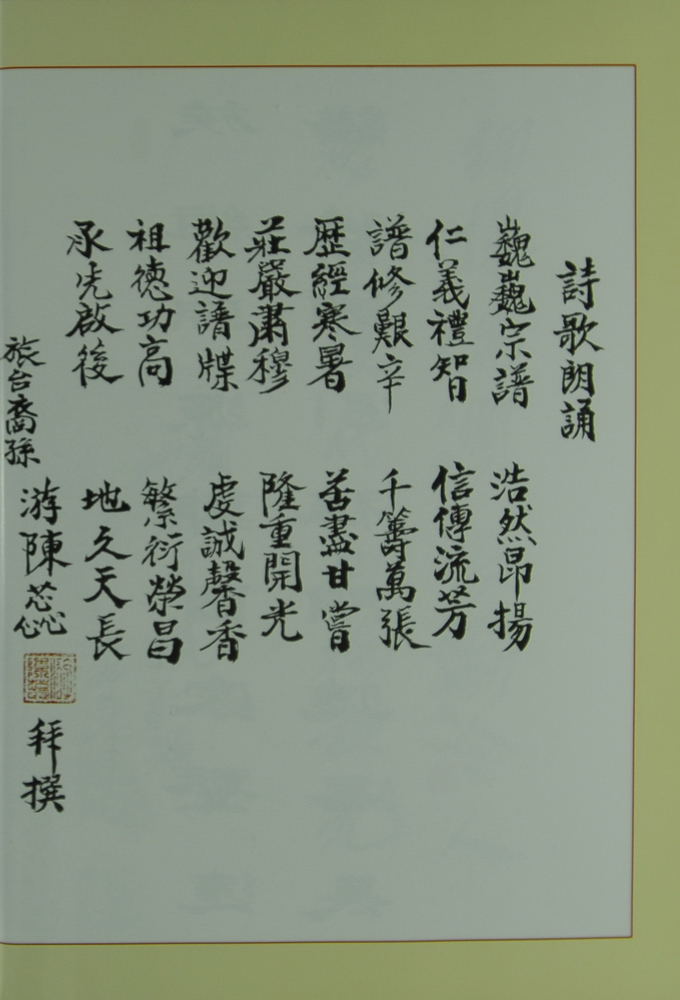 詩歌朗誦
巍巍宗譜 浩然昂揚
仁義禮智 信傳流芳
譜修艱辛 千籌萬張
歷經寒暑 苦盡甘嘗
莊嚴肅穆 隆重開光
歡迎譜牒 虔誠馨香
祖德功高 繁衍榮昌
承先啟後 地久天長
旅台裔孫 游陳芯 拜撰